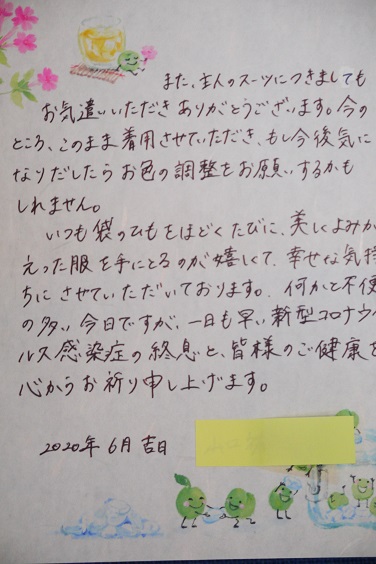 また、主人のスーツにつきましても
お気遣いいただきありがとうございます。今の
ところ、このまま着用させていただき、もし今後気に
なりだしたらお色の調整をお願いするかも
しれません。
いつも袋のひもをほどくたびに、美しくよみが
えった服を手にとるのが嬉しくて、幸せな気持
ちにさせていただいております。何かと不便
の多い今日ですが、一日も早い新型コロナウイ
ルス感染症の終息と、皆様のご健康を
心からお祈り申し上げます。
2020年6月吉日